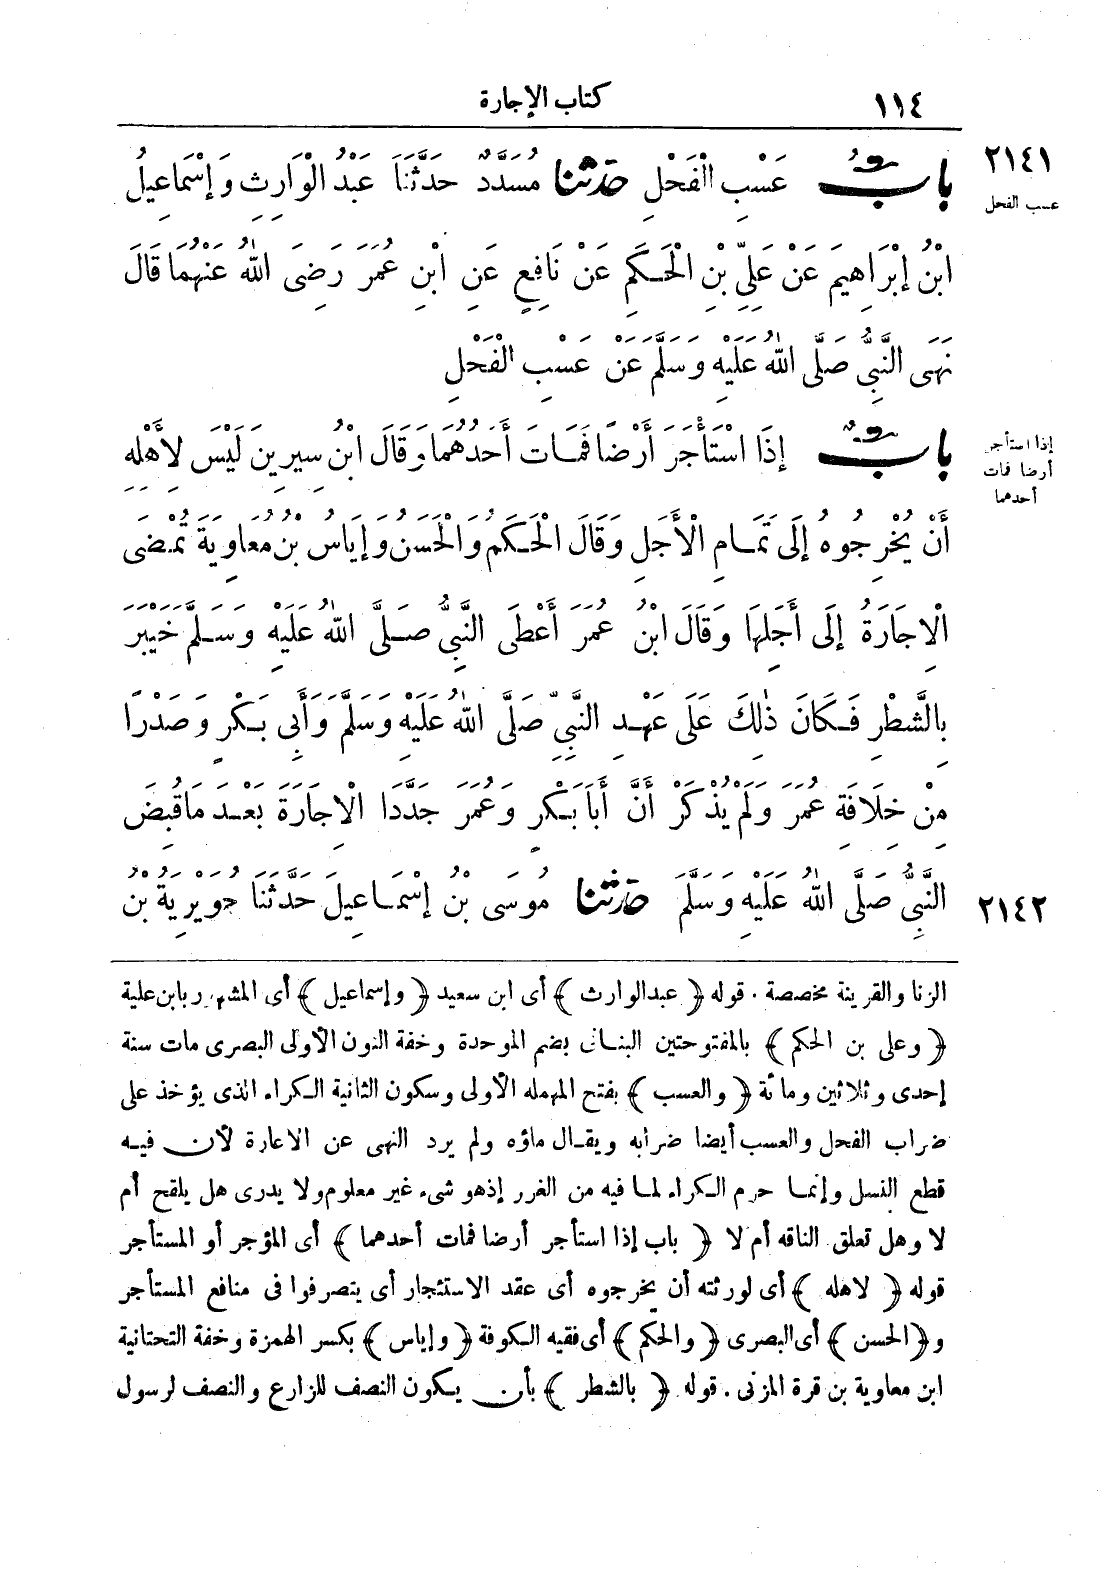 ١١٤ كتاب الإجارة
٢١٤١ عسب الفحل
بابُ عَسْبِ الْفَحْلِ حدثنا مُسَدَّدٌ حَدَّثَنَا عَبْدُ الْوَارِثِ وَإِسْمَاعِيلُ
ابْنُ إِبْرَاهِيمَ عَنْ عَلِيِّ بْنِ الْحَكَمِ عَنْ نَافِعٍ عَنِ ابْنِ عُمَرَ رَضِىَ اللهُ عَنْهُمَا قَالَ
نَهَى النَّبِىُّ صَلَّى اللهُ عَلَيْهِ وَسَلَّمَ عَنْ عَسْبِ الْفَحْلِ
إذا استأجر أرضا فمات أحدهما
بابٌ إِذَا اسْتَأْجَرَ أَرْضًا فَمَاتَ أَحَدُهُمَا وَقَالَ ابْنُ سِيرِينَ لَيْسَ لِأَهْلِهِ
أَنْ يُخْرِجُوهُ إِلَى تَمَامِ الْأَجَلِ وَقَالَ الْحَكَمُ وَالْحَسَنُ وَإِيَاسُ بْنُ مُعَاوِيَةَ تُمْضَى
الْإِجَارَةُ إِلَى أَجَلِهَا وَقَالَ ابْنُ عُمَرَ أَعْطَى النَّبِىُّ صَلَّى اللهُ عَلَيْهِ وَسَلَّمَ خَيْبَرَ
بِالشَّطْرِ فَكَانَ ذٰلِكَ عَلَى عَهْدِ النَّبِىِّ صَلَّى اللهُ عَلَيْهِ وَسَلَّمَ وَأَبِى بَكْرٍ وَصَدْرًا
مِنْ خِلَافَةِ عُمَرَ وَلَمْ يُذْكَرْ أَنَّ أَبَا بَكْرٍ وَعُمَرَ جَدَّدَا الْإِجَارَةَ بَعْدَ مَا قُبِضَ
٢١٤٢ النَّبِىُّ صَلَّى اللهُ عَلَيْهِ وَسَلَّمَ حدثنا مُوسَى بْنُ إِسْمَاعِيلَ حَدَّثَنَا جُوَيْرِيَةُ بْنُ
الزنا والقرينة مخصصة . قوله ﴿عبدالوارث﴾ أى ابن سعيد ﴿وإسماعيل﴾ أى المشهور بابن علية
﴿وعلى بن الحكم﴾ بالمفتوحتين البنانى بضم الموحدة وخفة النون الأولى البصرى مات سنة
إحدى وثلاثين ومائة ﴿والعسب﴾ بفتح المهمله الأولى وسكون الثانية الكراء الذى يؤخذ على
ضراب الفحل والعسب أيضا ضرابه ويقال ماؤه ولم يرد النهى عن الاعارة لأن فيه
قطع النسل وإنما حرم الكراء لما فيه من الغرر إذ هو شىء غير معلوم ولا يدرى هل يلقح أم
لا وهل تعلق الناقه أم لا ﴿باب إذا استأجر أرضا فمات أحدهما﴾ أى المؤجر أو المستأجر
قوله ﴿لاهله﴾ أى لورثته أن يخرجوه أى عقد الاستئجار أى يتصرفوا فى منافع المستأجر
و﴿الحسن﴾ أى البصرى ﴿والحكم﴾ أى فقيه الكوفة ﴿وإياس﴾ بكسر الهمزة وخفة التحتانية
ابن معاوية بن قرة المزنى . قوله ﴿بالشطر﴾ بأن يكون النصف للزارع والنصف لرسول